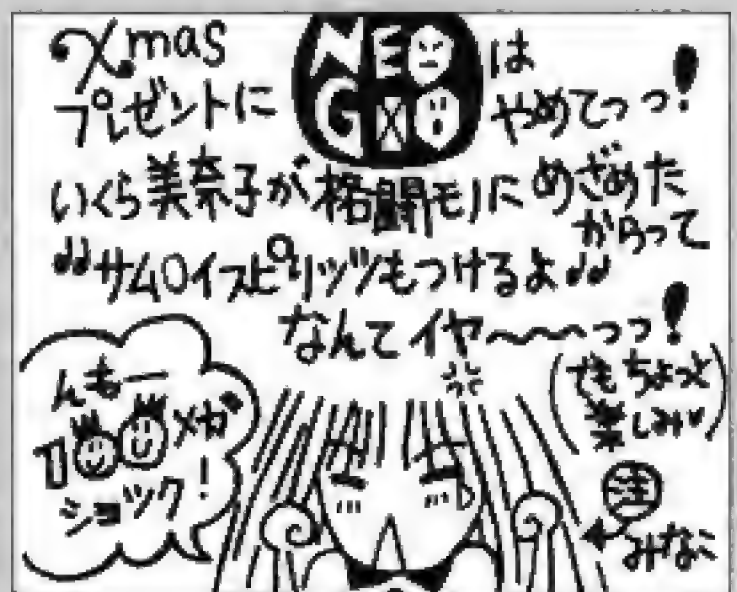 Xmas
プレゼントに
NEO
GEO
は
やめてっっ!
いくら美奈子が格闘モノにめざめた
からって
"サムライスピリッツもつけるよ"
なんてイヤ~~~っっ!
(でもちょっと
楽しみ♥)
んもー
100メガ
ショック!
注
みなこ